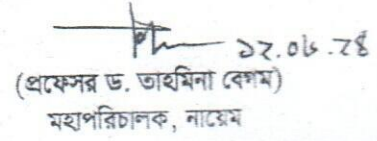 ১২.০৬.২৪
(প্রফেসর ড. তাহমিনা বেগম)
মহাপরিচালক, নায়েম